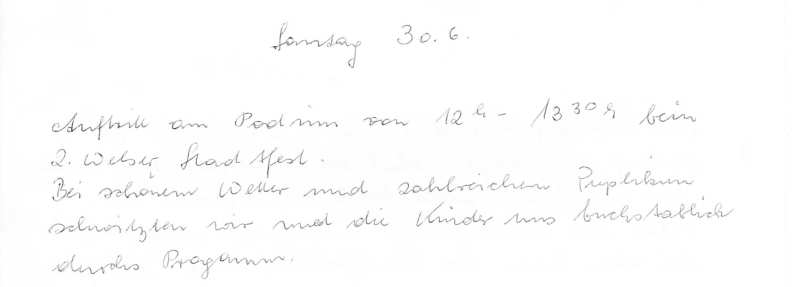 Samstag 30.6.
Auftritt am Podium von 12h - 1330h beim
2. Welser Stadtfest.
Bei schönem Wetter und zahlreichen Puplikum
schwitzten wir und die Kinder uns buchstablich
durchs Progamm.